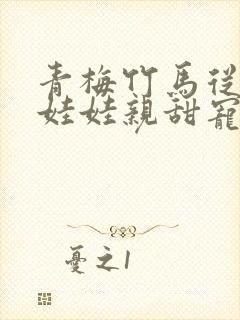 青梅竹馬從
娃娃親甜寵
憂之1